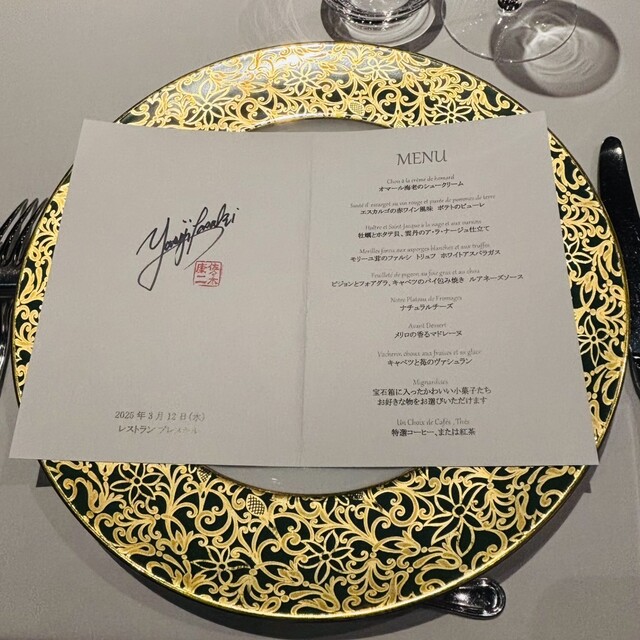 佐々木
康二
2025年3月12日(水)
レストラン プレヌール
MENU
Chou à la crème de homard
オマール海老のシュークリーム
エスカルゴの赤ワイン風味 ポテトのピューレ
牡蠣とホタテ貝、雲丹のア・ラ・ナージュ仕立て
Morilles farcis aux asperges blanches et aux truffes
モリーユ茸のファルシ トリュフ ホワイトアスパラガス
Feuilleté de pigeon au foie gras et au chou
ピジョンとフォアグラ、キャベツのパイ包み焼き ルアネーズソース
Notre Plateau de Fromages
ナチュラルチーズ
Avant Dessert
メリロの香るマドレーヌ
Vacherin choux aux fraises et sa glace
キャベツと苺のヴァシュラン
Mignardises
宝石箱に入ったかわいい小菓子たち
お好きな物をお選びいただけます
Un Choix de Cafés ,Thés
特選コーヒー、または紅茶